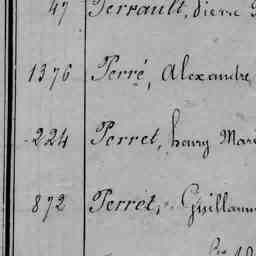 47 Perrault, Pierre
1376 Perré, Alexandre
224 Perret, henry Mari
872 Perret, Guillaum